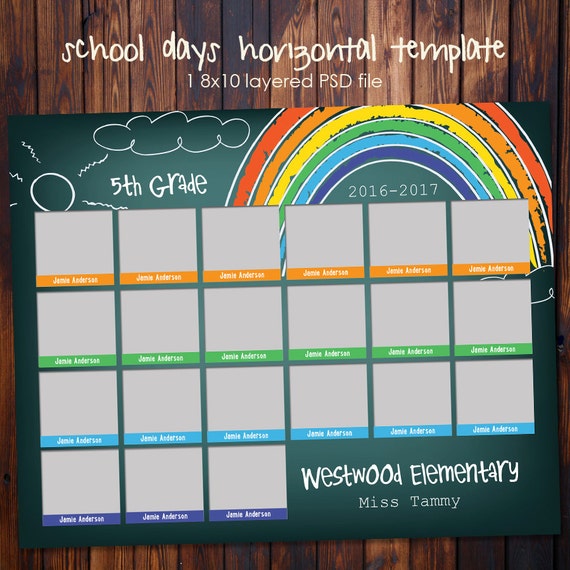 school days horizontal template
1 8x10 layered PSD file
5th Grade
2016-2017
Jamie Anderson Jamie Anderson Jamie Anderson Jamie Anderson Jamie Anderson Jamie Anderson
Jamie Anderson Jamie Anderson Jamie Anderson Jamie Anderson Jamie Anderson Jamie Anderson
Jamie Anderson Jamie Anderson Jamie Anderson Jamie Anderson Jamie Anderson Jamie Anderson
Westwood Elementary
Miss Tammy
Jamie Anderson Jamie Anderson Jamie Anderson